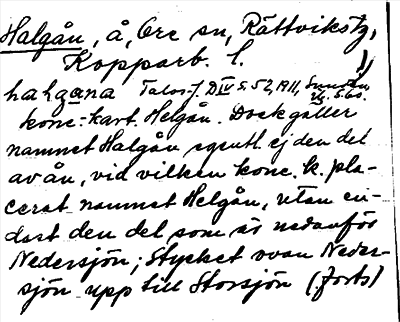 Halgån, å, Ore sn, Rättviks tg,
Kopparb. l.
hahgana Talos-f. D IV S. 52, 1911,
konc.-kart. Helgån. Dock gäller
namnet Halgån egentl. ej den del
av ån, vid vilken konc. k. pla-
cerat namnet Helgån, utan en-
dast den del som är nedanför
Nedersjön; stycket ovan Neder-
sjön upp till Storsjön (forts)